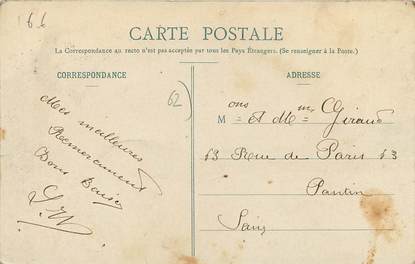 66
CARTE POSTALE
La Correspondance au recto n'est pas acceptée par tous les Pays Étrangers. (Se renseigner à la Poste.)
CORRESPONDANCE
62
Mes meilleures
Remerciement
Bons Baisers
ADRESSE
Mons et Mme Giraud
13 Rue de Paris 13
Pantin
Paris